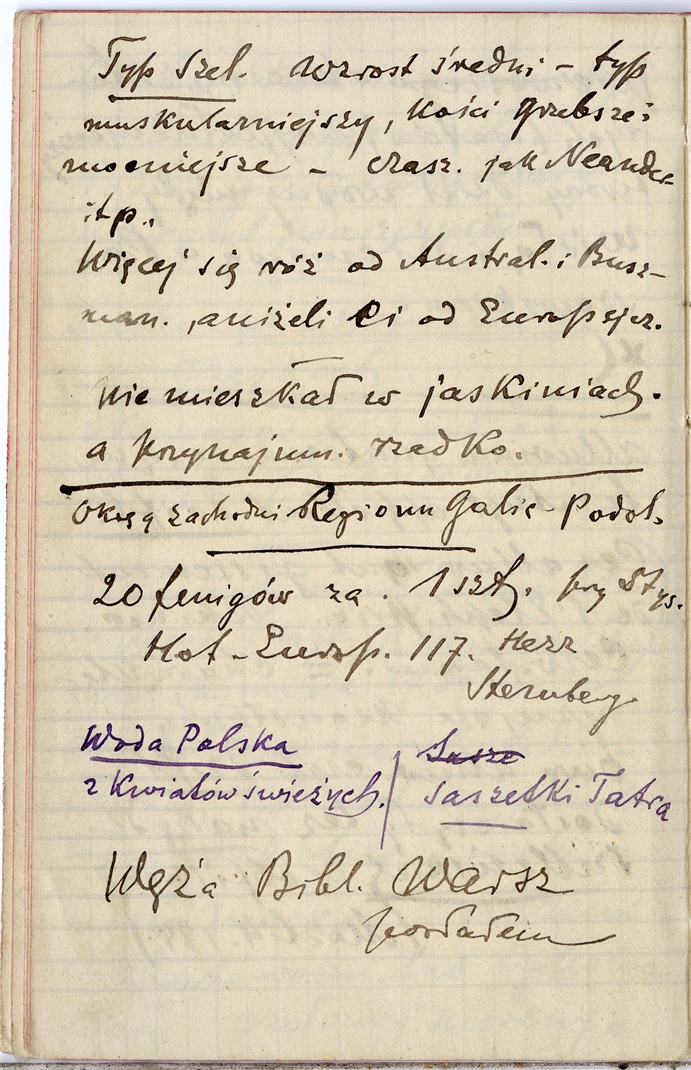 Typ Szel. Wzrost średni – typ
muskularniejszy, kości grubsze i
mocniejsze – czasz. jak Neander
itp.,
Więcej się róż od Austral. i Busz–
man., aniżeli Ci od Europejcz.
Nie mieszkał w jaskiniach.
a przynajmn. rzadko.
Okrąg zachodni Regionu Galic– Podol.
20 fenigów za . 1 szt. przy
Hot – Europ. 117. Herr
Sternberg
Woda Polska
z Kwiatów świeżych.
Sasze
Saszetki Tatra
Węża Bibl. Warsz